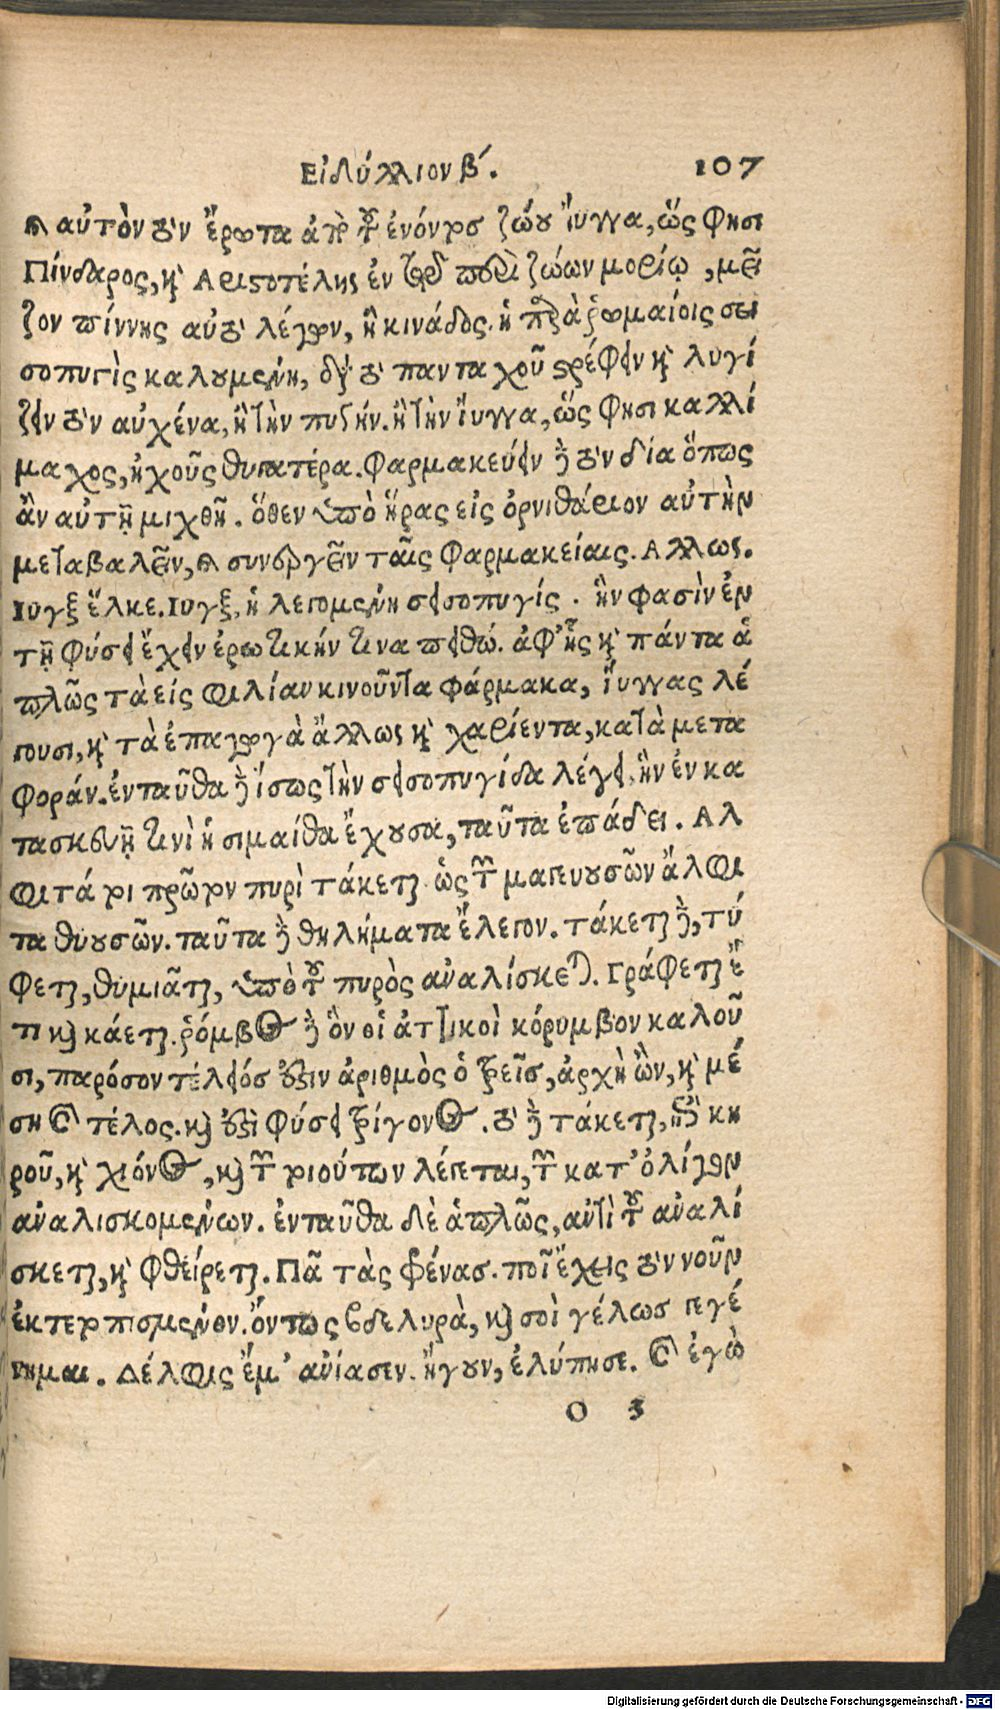 Εἰδύλλιον β΄. 107
π αὐτὸν τὸν ἔρωτα ἀπὸ τοῦ ἐνόντος ζώου ἴυγγα, ὥς φησι
Πίνδαρος, καὶ Αριστοτέλης ἐν τῷ περὶ ζώων μορίῳ, μεῖ
ζον πίννης αὐτὸ λέγων, ἢ κινάδος. ἡ παρὰ ῥωμαίοις σει
σοπυγὶς καλουμένη, διὰ τὸ πανταχοῦ στρέφειν καὶ λυγί
ζειν τὸν αὐχένα, ἢ τὴν πυγήν. ἢ τὴν ἴυγγα, ὥς φησι καλλί
μαχος, ἠχοῦς θυγατέρα. φαρμακεύειν δὲ τὸν δία ὅπως
ἂν αὐτῇ μιχθῇ. ὅθεν ὑπὸ ἥρας εἰς ὀρνιθάριον αὐτὴν
μεταβαλεῖν, π συνεργεῖν ταῖς φαρμακείαις. Αλλως.
Ιυγξ ἕλκε. Ιυγξ, ἡ λεγομένη σεισοπυγίς. ἥν φασὶν ἐν
τῇ φύσει ἔχειν ἐρωτικήν τινα πειθώ. ἀφ' ἧς καὶ πάντα ἁ
πλῶς τὰ εἰς φιλίαν κινοῦντα φάρμακα, ἴυγγας λέ
γουσι, καὶ τὰ ἐπαγωγὰ ἄλλως καὶ χαρίεντα, κατὰ μετα
φοράν. ἐνταῦθα δὲ ἴσως τὴν σεισοπυγίδα λέγει, ἣν ἐν κα
τασκευῇ τινὶ ἡ σιμαίθα ἔχουσα, ταῦτα ἐπάδει. Αλ
φιτά τοι πρῶτον πυρὶ τάκεται ὡς τῶν μαγευουσῶν ἄλφι
τα θυουσῶν. ταῦτα δὲ θηλήματα ἔλεγον. τάκεται δὲ, τύ
φεται, θυμιᾶται, ὑπὸ τοῦ πυρὸς ἀναλίσκεται. Γράφεται ἔ
τι καὶ κάεται. ῥόμβος δὲ ὃν οἱ ἀττικοὶ κόρυμβον καλοῦ
σι, παρόσον τέλειός ἐστιν ἀριθμὸς ὁ τρεῖς, ἀρχὴ ὢν, καὶ μέ
ση καὶ τέλος. καὶ ἐστὶ φύσει τρίγονος. τὸ δὲ τάκεται, ἐπὶ κη
ροῦ, καὶ χιόνος, καὶ τῶν τοιούτων λέγεται, τῶν κατ' ὀλίγον
ἀναλισκομένων. ἐνταῦθα δὲ ἁπλῶς, ἀντὶ τοῦ ἀναλί
σκεται, καὶ φθείρεται. Πᾶ τὰς φρένας. ποῖ ἔχεις τὸν νοῦν
ἐκτερπισμένον. ὄντως βδελυρὰ, καὶ σοὶ γέλως γεγέ
νημαι. Δέλφις ἔμ' ἀνίασεν. ἤγουν, ἐλύπησε. καὶ ἐγὼ
O 3
Digitalisierung gefördert durch die Deutsche Forschungsgemeinschaft - DFG